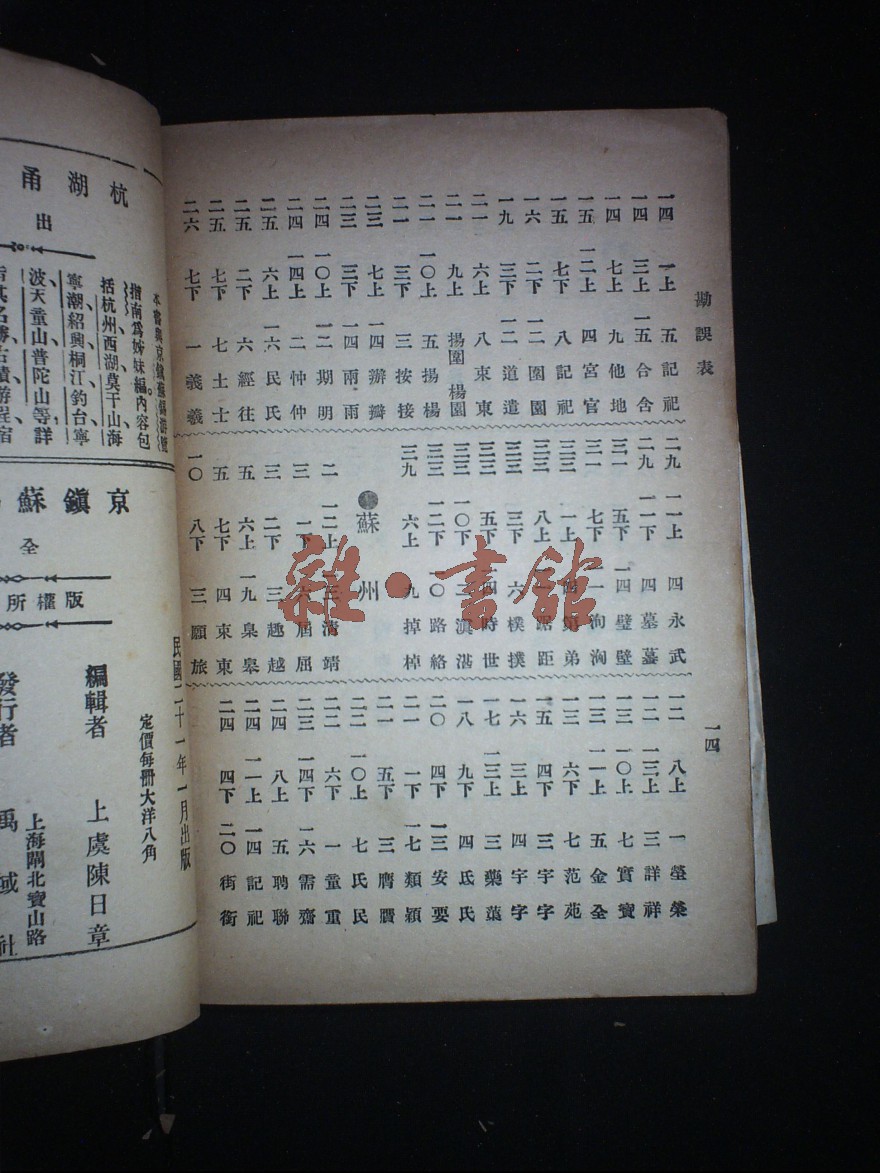 勘誤表
一四
一四 一上 五 記 祀
一四 三上 一五 合 含
一四 七上 九 他 地
一五 一二上 四 宮 官
一五 七下 八 記 祀
一六 二下 一二 圍 園
一九 三下 二 道 遣
二一 六上 八 東 東
二一 九上 揚圍 楊園
二一 一〇上 五 揚 楊
二一 三下 三 按 接
二三 七上 一四 辦 瓣
二三 三下 一四 兩 雨
二四 一〇上 二 期 明
二四 一四上 一二 忡 仲
二五 六上 一六 民 氏
二五 二下 六 經 往
二五 七下 七 土 士
二六 七下 一 義 羲
二九 一一上 四 永 武
二九 一一下 四 墓 蟇
三一 五下 一四 璧 壁
三一 七下
三三 一上 弟
三三 八上 距
三三 三下 六 樸 撲
三三 五下 時 世
三三 一〇下 滇 湛
三三 一二下 一〇 路 絡
三九 六上 九 掉 棹
●蘇州
二 一二上 清 靖
三 一下 六 屆 屈
三 二下 三 趣 越
五 六上 一九 臬 皋
五 七下 四 東 東
一〇 八下 三 願 旅
一二 八上 一 塋 榮
一二 一三上 三 詳 祥
一三 一〇上 七 實 寶
一三 一一上 五 金 全
一三 六下 七 范 苑
一五 四下 三 宇 字
一六 三上 四 宇 字
一七 一三上 三 藥 葉
一八 九下 四 氏 氏
二〇 四下 一三 安 要
二一 一下 一七 類 穎
二一 五下 三 膺 贋
二二 一〇上 七 氏 民
二二 六下 一 童 重
二三 一四下 一六 需 齋
二四 八上 五 聘 聯
二四 一一上 一四 記 祀
二四 四下 二〇 街 衛
杭湖甬
出
本書與京鎮蘇錫游覽
指南爲姊妹編。內容包
括杭州西湖、莫干山、海
寧潮、紹興、桐江釣台、寧
波天童山、普陀山等、詳
京鎮蘇
全
版權所
民國二十一年一月出版
定價每冊大洋八角
編輯者 上虞陳日章
上海閘北寶山路
發行者 禹域社
雜·書館